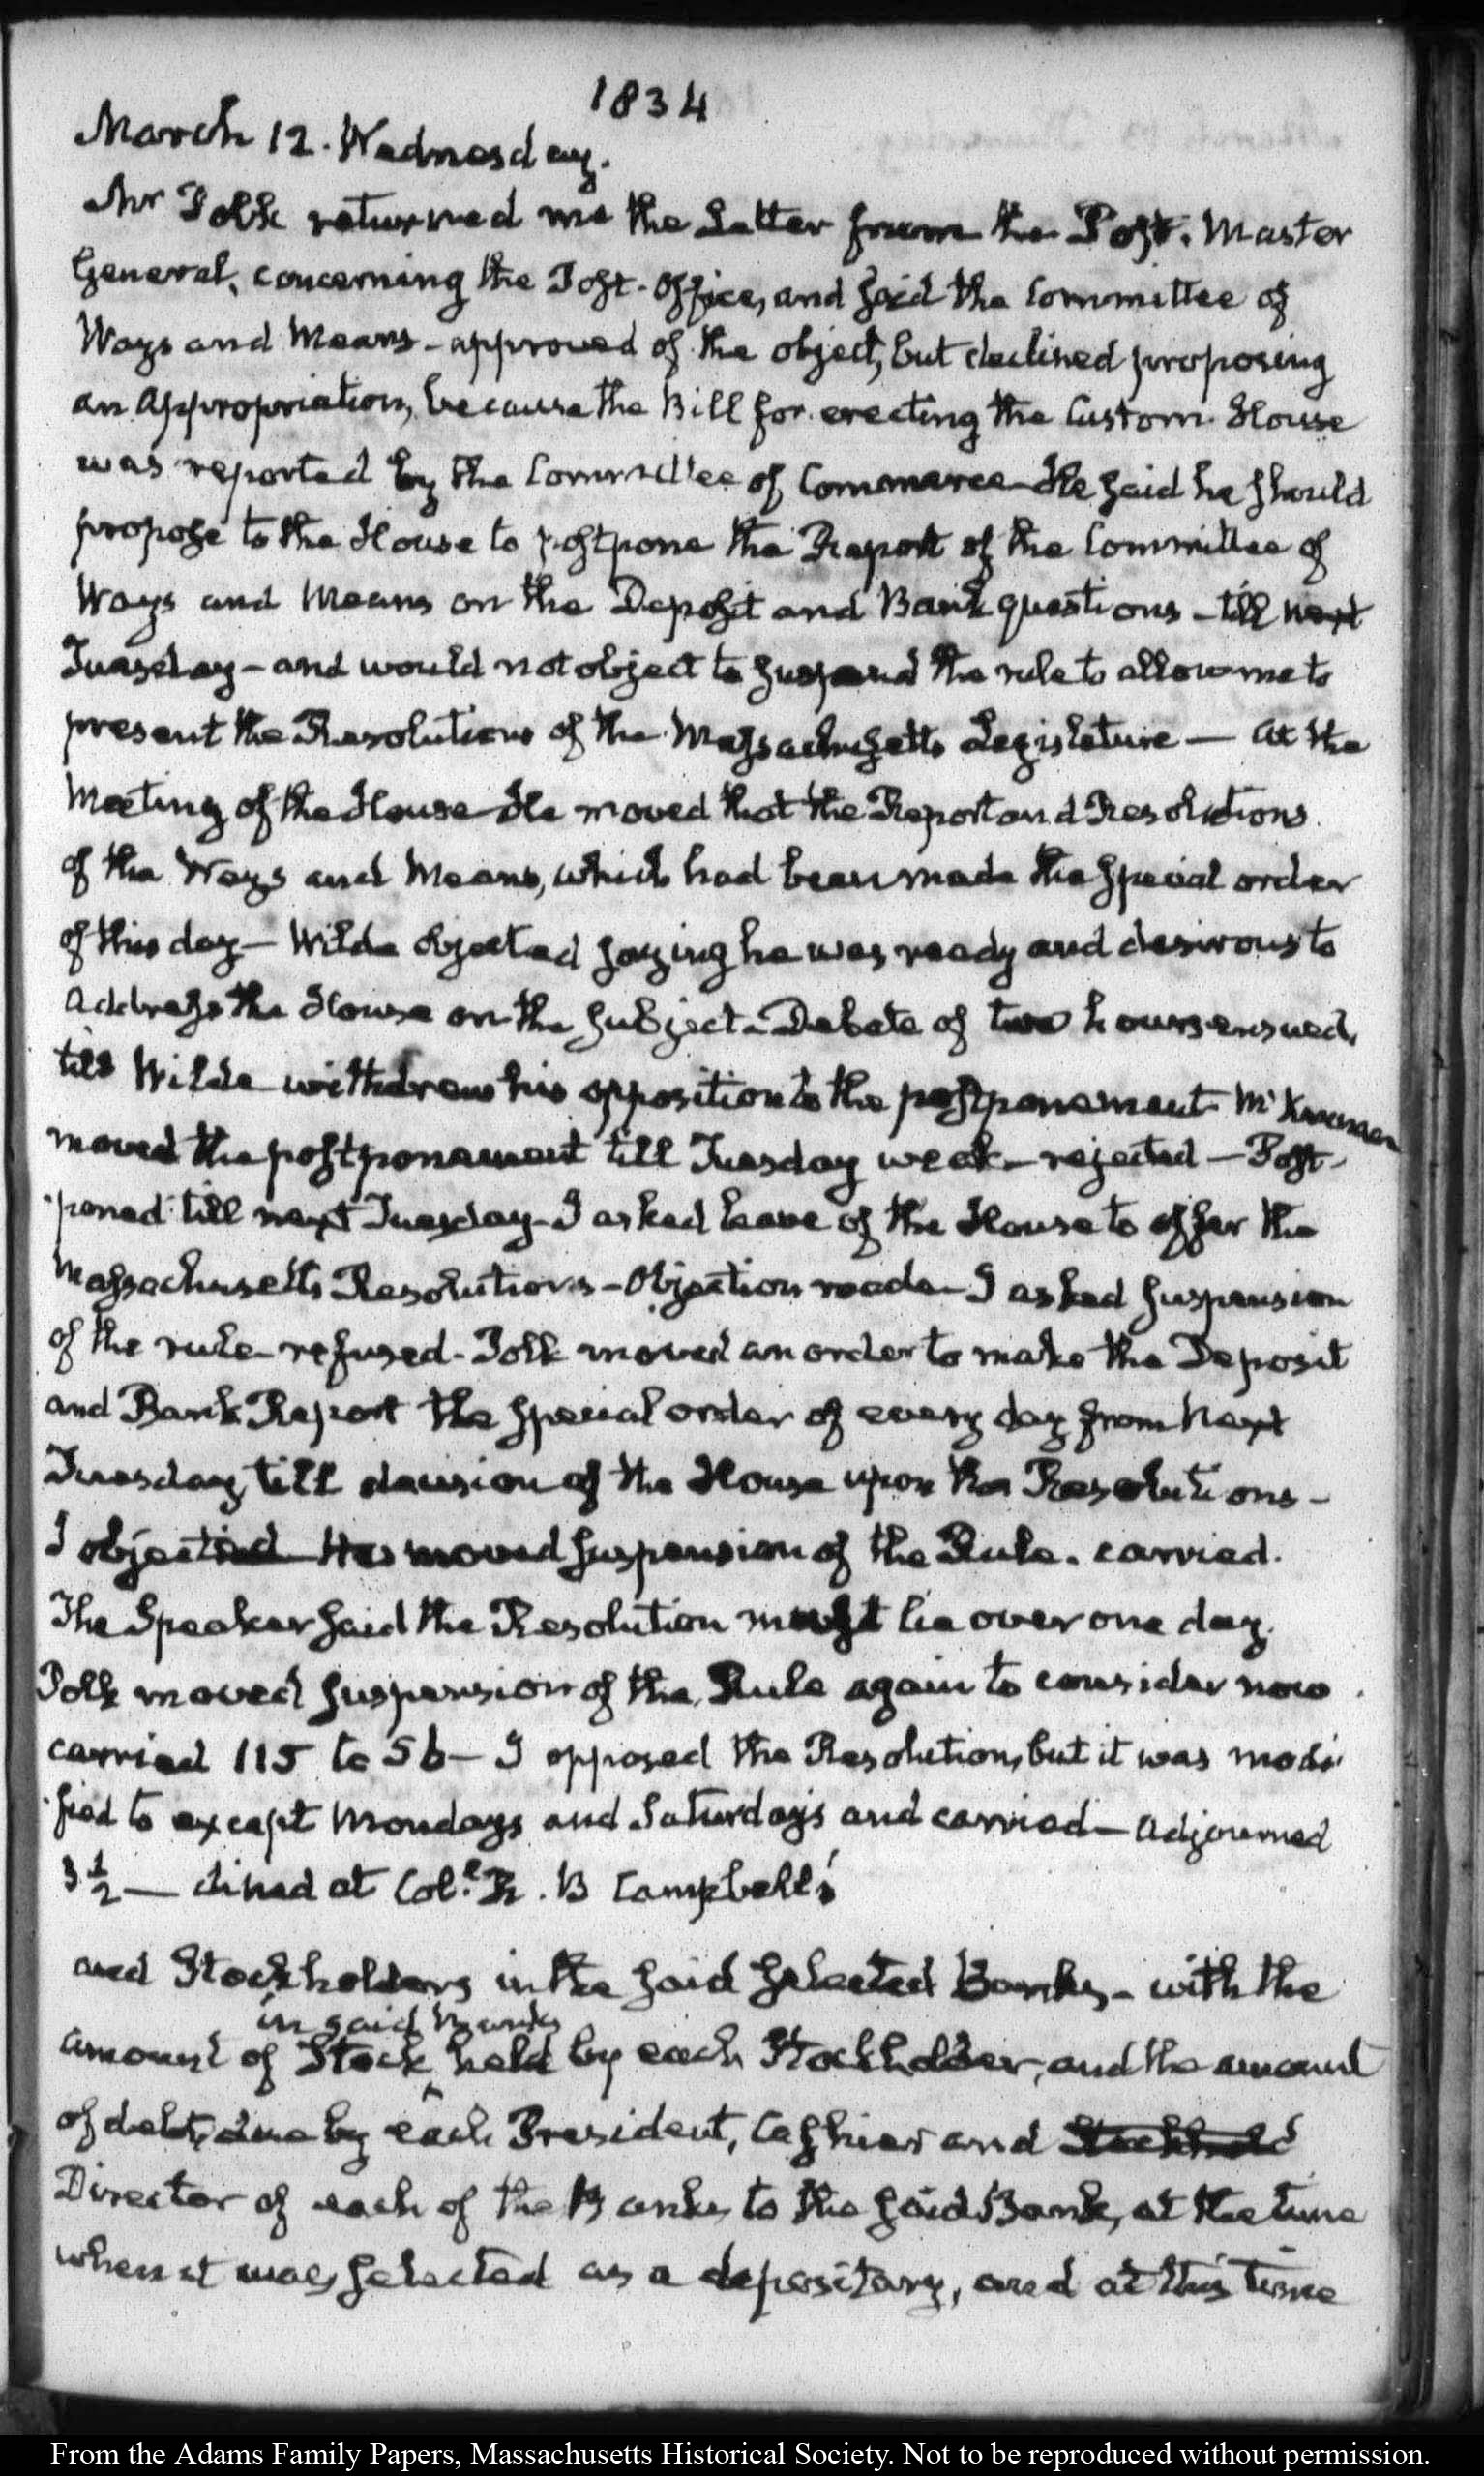 1834
March 12. Wednesday.
Mr Polk returned me the Letter from the Post. Master
General, concerning the Post-Office, and said the Committee of
Ways and Means – approved of the object, but declined proposing
an appropriation, because the Bill for erecting the Custom House
was reported by the Committee of Commerce – He said he should
propose to the House to postpone the Report of the Committee of
Ways and Means on the Deposit and Bank questions – till next
Tuesday – and would not object to suspend the rule to allow me to
present the Resolutions of the Massachusetts Legislature — At the
Meeting of the House He moved that the Report and Resolutions
of the Ways and Means, which had been made the special order
of this day – Wilde objected saying he was ready and desirous to
address the House on the subject – Debate of two hours ensued,
till Wilde withdrew his opposition to the postponement
moved the postponement till Tuesday week – rejected – Post-
poned till next Tuesday – I asked leave of the House to offer the
Massachusetts Resolutions – Objection made – I asked suspension
of the rule – refused – Polk moved an order to make the Deposit
and Bank Report the special order of every day from next
Tuesday till decision of the House upon the Resolutions –
I objected – He moved suspension of the Rule. carried.
The Speaker said the Resolution must lie over one day.
Polk moved suspension of the Rule again to consider now
carried 115 to 56 – I opposed the Resolution, but it was modi
fied to except Mondays and Saturdays and carried – Adjourned
3 1/2 — dined at Coll. R. B Campbell's
and Stockholders in the said selected Banks – with the
in said Banks
amount of Stock held by each Stockholder, and the amount
of debt, due by each President, Cashier and Stockhold
Director of each of the Banks to the said Bank, at the time
when it was selected as a depositary, and at this time
From the Adams Family Papers, Massachusetts Historical Society. Not to be reproduced without permission.